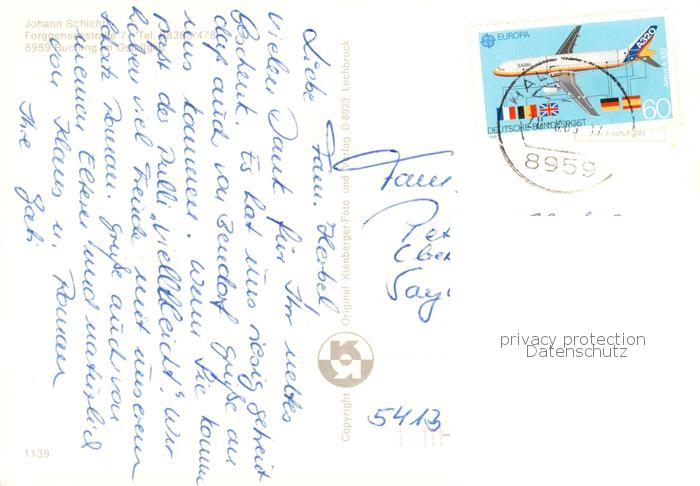 Johann Schich
Forggenseestraße 7 · Tel. 08368/478
8959 Buching im Ostallgäu
Liebe Fam. Herbel
vielen Dank für Ihr nettes
Geschenk. Es hat uns riesig gefreut
auch von Bendorf Grüße an
uns kommen. Wenn Sie kommen
Paßt der Pulli, vielleicht? Wir
haben viel Freude mit unserem
Roman. Grüße auch von
meinen Eltern und natürlich
von Klaus u. Roman
Ihre Gabi
1139
Copyright Original Kienberger-Foto und Verlag D-8923 Lechbruck
EUROPA
A320
Airbus A320
60
DEUTSCHE BUNDESPOST
8959
Fam.
Pet
Sayn
5413
privacy protection
Datenschutz